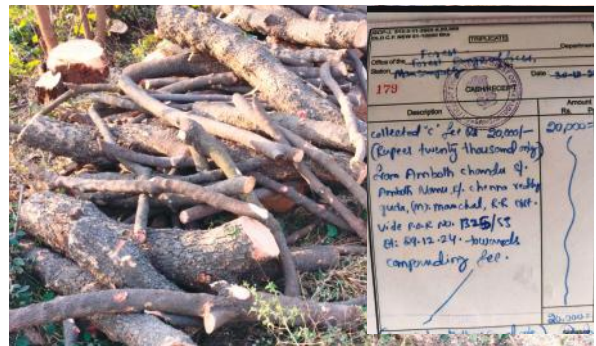 (TRIPLICATE)
Forest Department
Office of the Forest Range Officer,
Station Date 30-12-2
179 CASH RECEIPT
Description Amount
Rs. P
collected "c" fee Rs 20,000/- 20,000=
(Rupees twenty thousand only)
from Ambath chandu S/o
Ambath Namu, r/o chenna reddy
guda, (m): manchal, R.R dist.
vide P.O.R no.
Dt: 29.12.24. towards
compounding fee.
20.000=